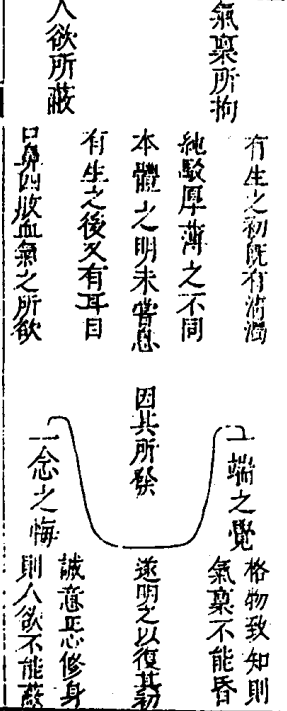 氣稟所拘
人欲所蔽
有生之初既有清濁
純駁厚薄之不同
本體之明未嘗息
有生之後又有耳目
口鼻四肢血氣之所欲
因其所發
一端之覺
一念之悔
格物致知則
氣稟不能昏
遂明之以復其初
誠意正心修身
則人欲不能蔽